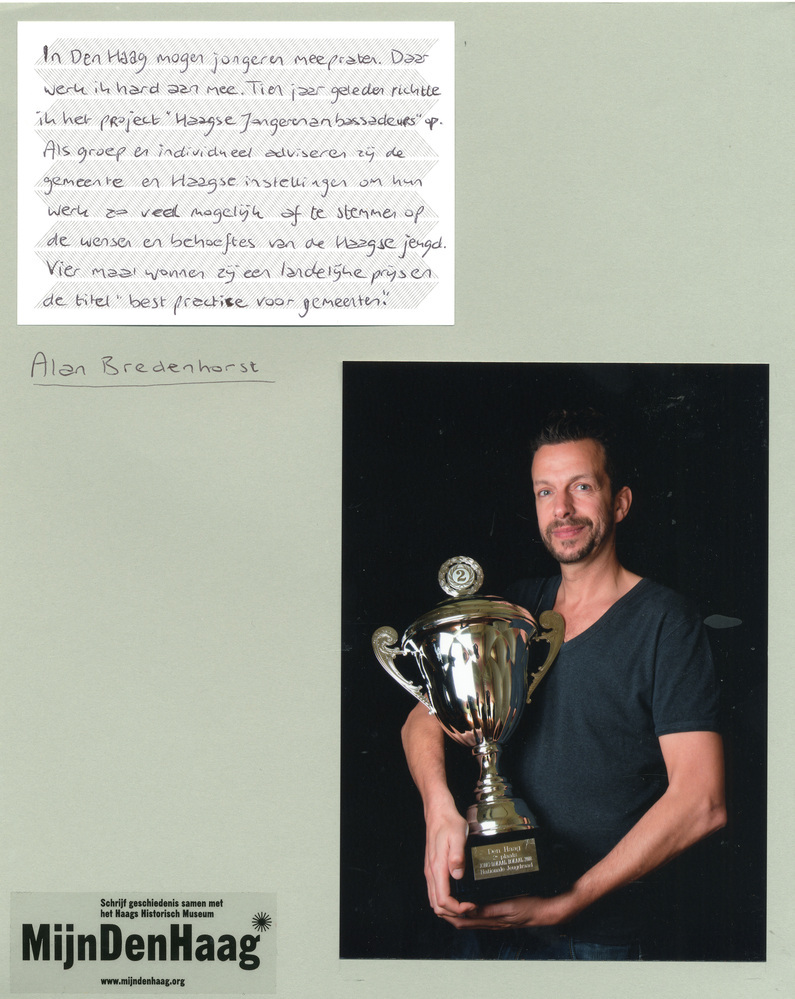 In Den Haag mogen jongeren meepraten. Daar
werk ik hard aan mee. Tien jaar geleden richtte
ik het project "Haagse Jongerenambassadeurs" op.
Als groep en individueel adviseren zij de
gemeente en Haagse instellingen om hun
werk zo veel mogelijk af te stemmen op
de wensen en behoeftes van de Haagse jeugd.
Vier maal wonnen zij een landelijke prijs en
de titel "best practice voor gemeenten."
Alan Bredenhorst
2
Den Haag
2e plaats
Nationale Jeugdraad
Schrijf geschiedenis samen met
het Haags Historisch Museum
MijnDenHaag*
www.mijndenhaag.org